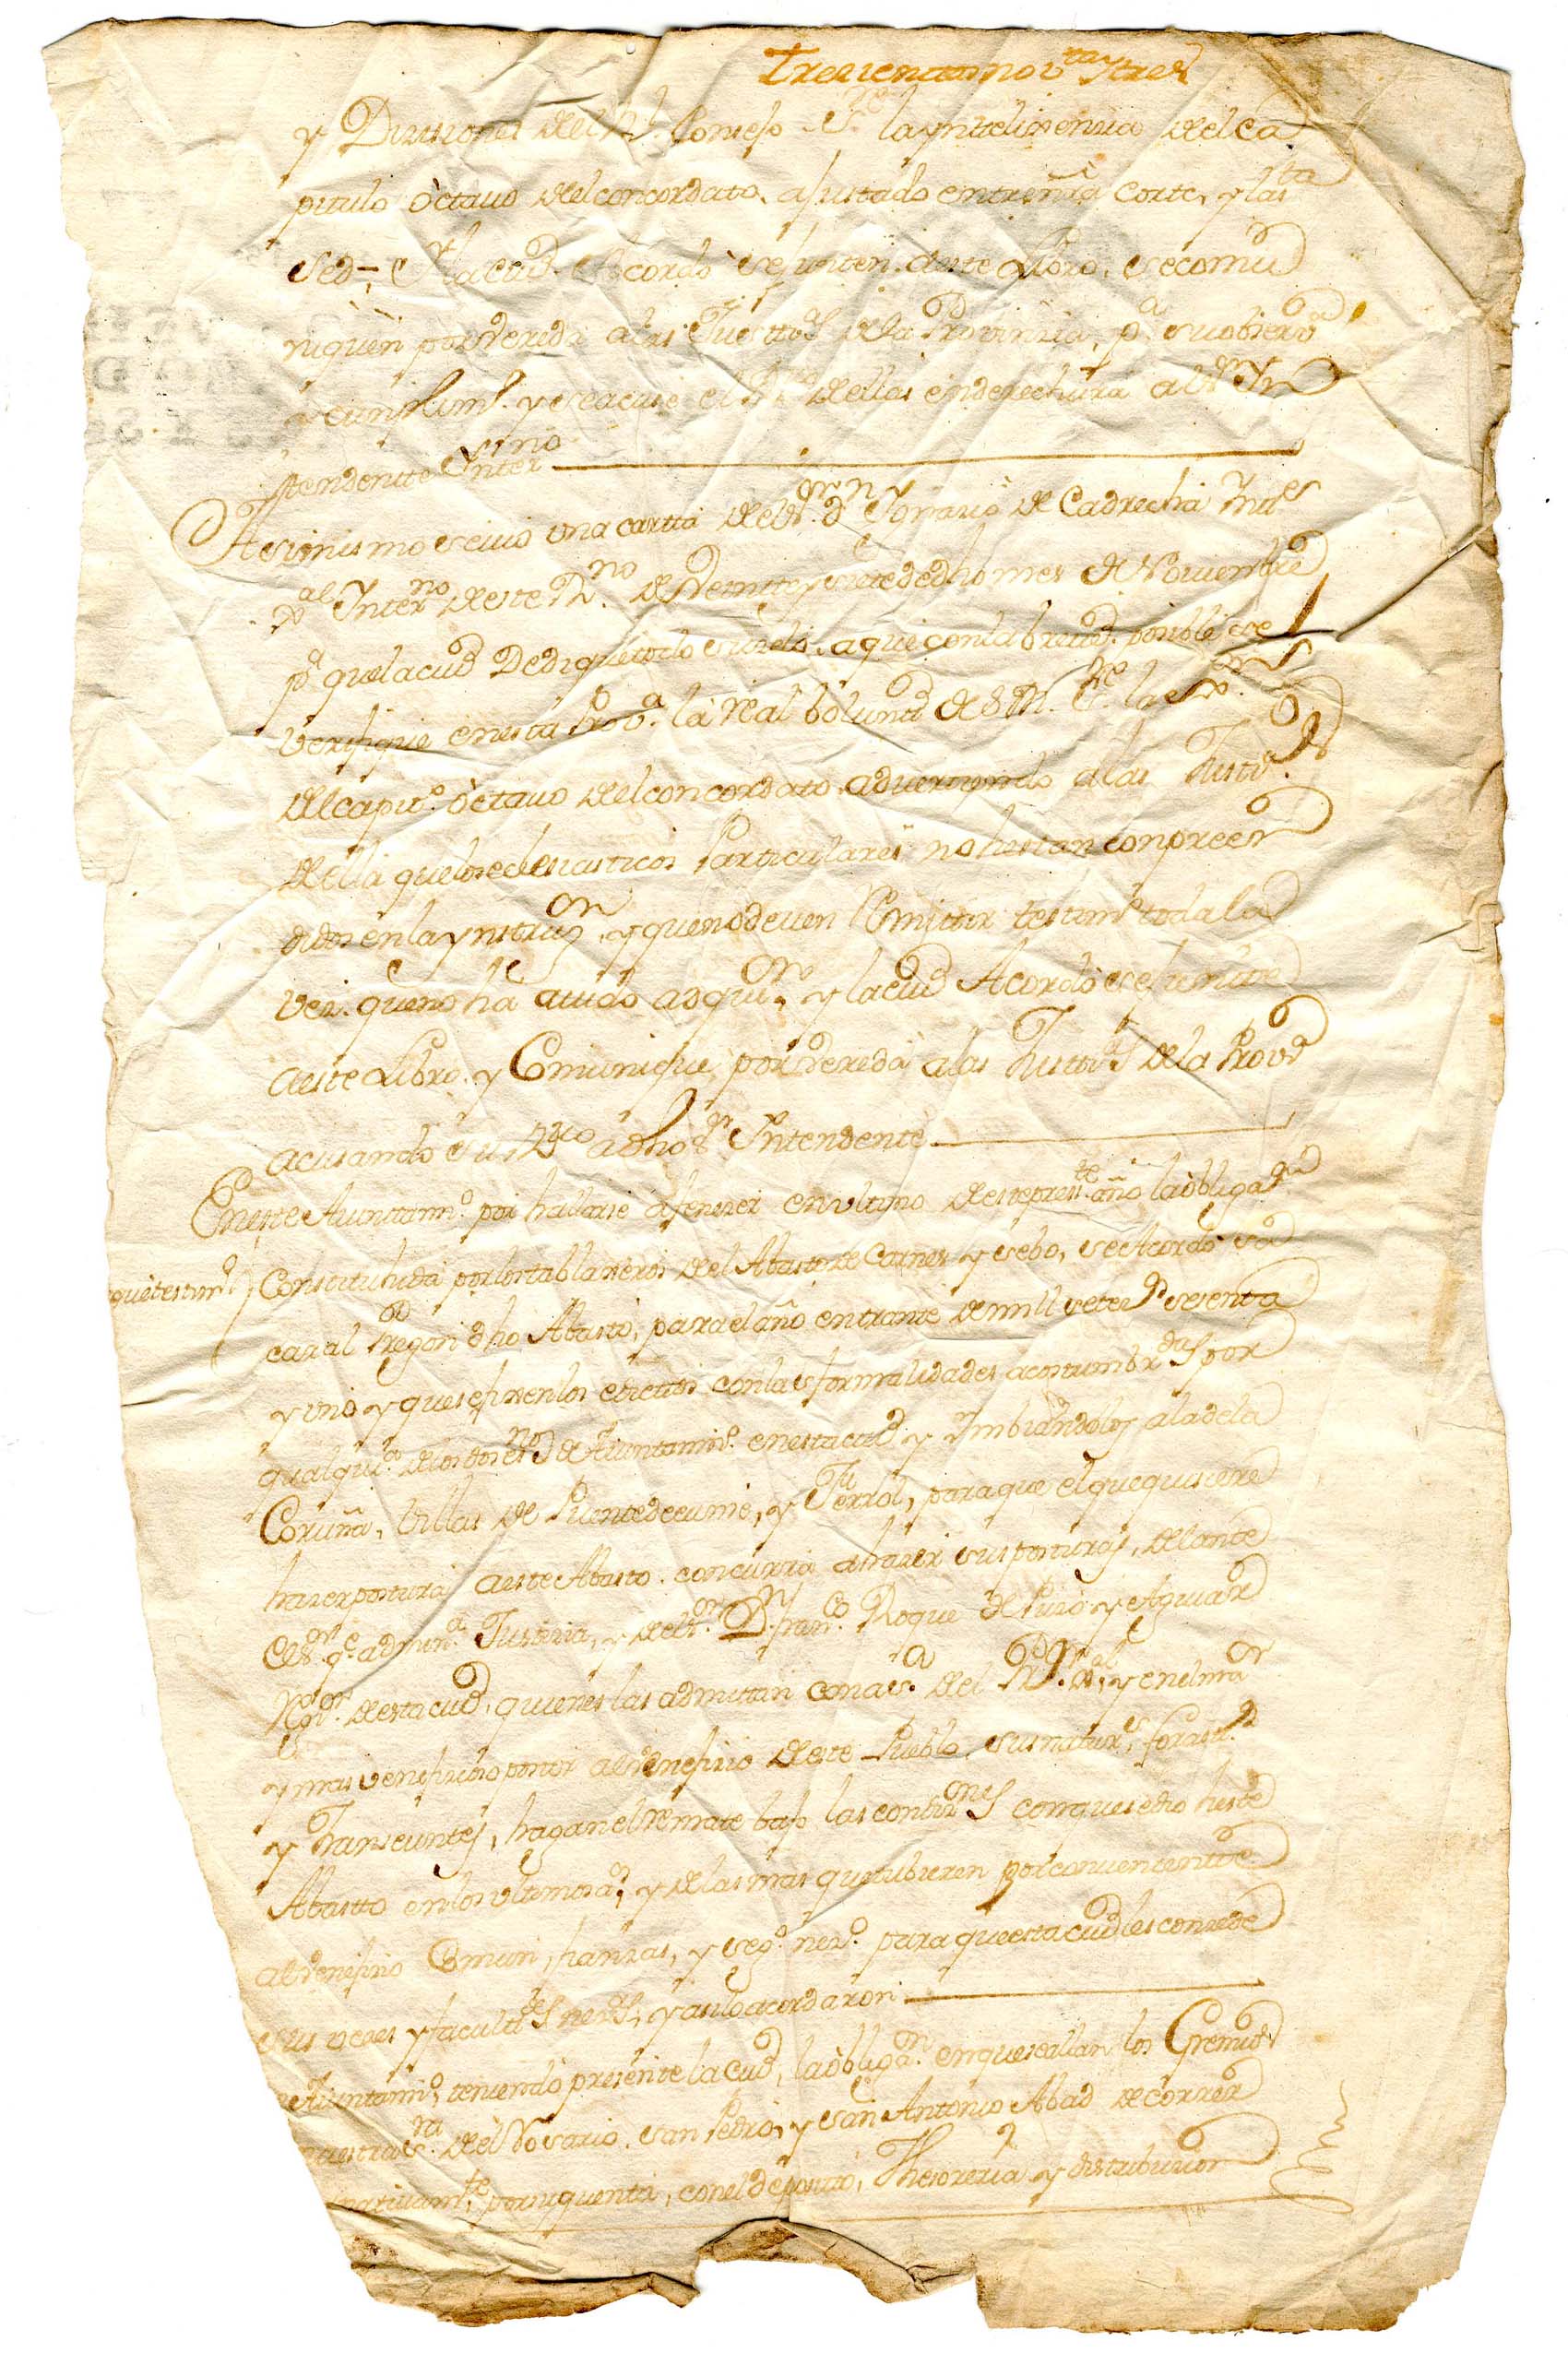 Trescientos nov.ta y tres
y Divisiones del R.l Consejo S.re la ynteligencia del Ca
pitulo octauo del concordato ajustado entre nrã Corte, y la S.ta
Sed= e la ciud Acordo se junten a este Libro, se comu
niquen por Vereda a las Justt.s de la Provincia, p.a su obserb.a
y cumplim.to y se acuse el R.vo de ellas en derechura al S.r Yn
tendente Inter.no
Asimismo se vio una cartta del S.r d.n Ygnacio de Cadrecha Int.e
g.al Inter.no de este R.no de Veinte y siete de dho mes de Nouiembre
p.a que la ciud Dedique todo su zelo a que con la breued posible se
Verifique en esta Prov.a la Real bolunt.d de S.M. S.re la
del capit.o octauo del concordato aduertiendo a las Justi.s
de ella que los eclesiasticos Particulares no hestan conpreen
didos en la ynstruz.on y que no deuen Remittir testim.o toda la
vez que no ha auido adqui.on y la ciud Acordo se junte
a este Libro y Comunique por Vereda a las Justt.s de la Prov.a
acusando su R.vo a dho S.r Intendente
En este Aiuntam.o por hallarse a fenezer en ultimo de este pres.te año la obligaz.n
que testim.o Constituhida por los tablaxeros del Abasto de Carnes y sebo, se Acordo sa
car al Pregon dho Abasto, para el año entrante de mill sete.s sesenta
y uno y que se fixen los edictos con las formalidades acostumbr.das por
qualqui.a de los dos es.nos de Aiuntamto. en esta ciud y Ymbiandolos a la de la
Coruña, Villas de Puentedeeume, y Ferrol, para que el que quisiere
hazer posturas a este Abasto concurra a hazer sus posturas, delante
el S.or q.e admin.a Justizia, y del S.or D.n Fran.co Roque de Puzo y Aguiar
R.or de esta ciud, quienes las admittan con as.a del P.r g.al, y en el mr.or
y mas veneficioso postor al Veneficio de este Pueblo, sus natur.s, foraste.s
y Transeuntes, hagan el remate bajo las condiz.nes con que se dio heste
Abastto en los ultimos a.s y de las mas que tubieren por conueniente
al Veneficio Comun, fianzas, y seg.o nez.o para que esta ciud les conzede
sus vezes y facult.des nez.s, y asi lo acordaron
Aiuntam.o, teniendo presente la Ciud, la obligaz.n en que se allan los Gremios
nuestra S.ra del Rosario, San Pedro, y San Antonio Abad de correr
por su quenta, con el deposito, Thesoreria y distribuzion